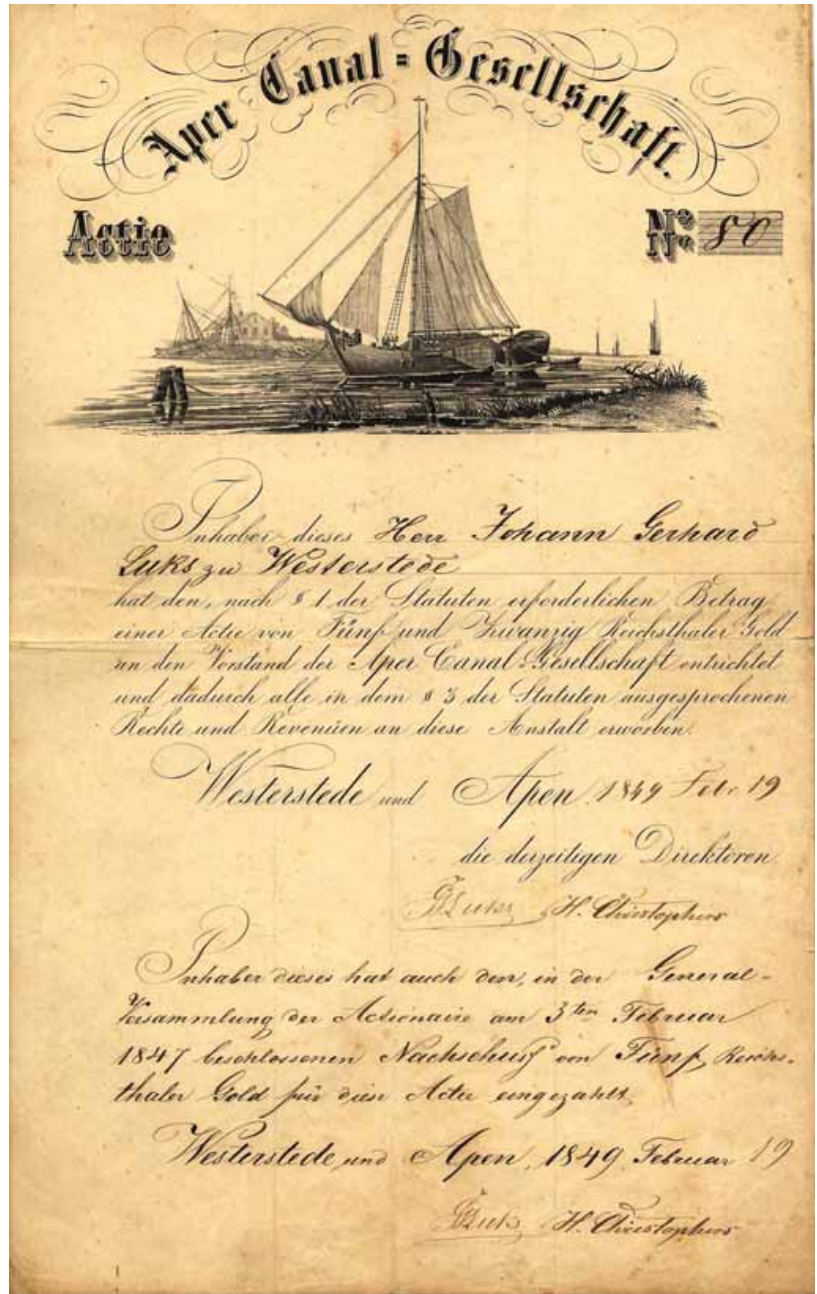 Aper Canal = Gesellschaft.
Actie
No. 80
Inhaber dieses Herr Johann Gerhard
Luks zu Westerstede
hat den, nach § 1 der Statuten erforderlichen Betrag
einer Actie von Fünf und Zwanzig Reichsthaler Gold
an den Vorstand der Aper Canal-Gesellschaft entrichtet
und dadurch alle in dem § 3 der Statuten ausgesprochenen
Rechte und Revenüen an diese Anstalt erworben.
Westerstede und Apen, 1849 Febr. 19
die derzeitigen Direktoren
Luks H. Christophers
Inhaber dieses hat auch den, in der General-
Versammlung der Actionaire am 3ten Februar
1847 beschlossenen Nachschuß von Fünf Reichs-
thaler Gold für diese Actie eingezahlt.
Westerstede und Apen, 1849 Februar 19
Luks H. Christophers